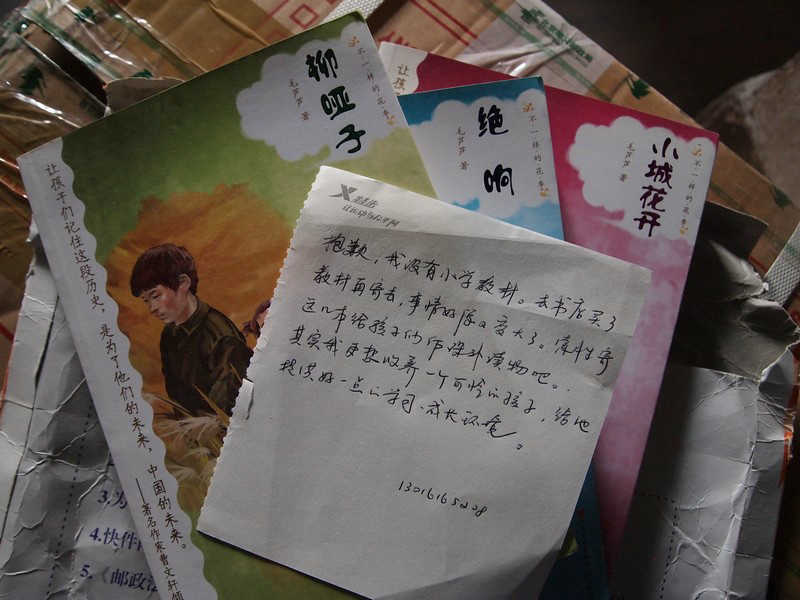 柳哑子
毛芦芦 著
不一样的花季
让孩子们记住这段历史,是为了他们的未来,中国的未来。
——著名作家曹文轩
绝响
毛芦芦 著
不一样的花季
小城花开
毛芦芦 著
不一样的花季
让孩
特步
让运动与众不同
抱歉,我没有小学教材。去书店买了
教材再寄去,事情 变大了。索性寄
这几本给孩子们作课外读物吧。
其实我更想收养一个可怜的孩子,给他
提供好一点的学习、成长环境。
13016165228
3.为
4.快件
5.《邮政法